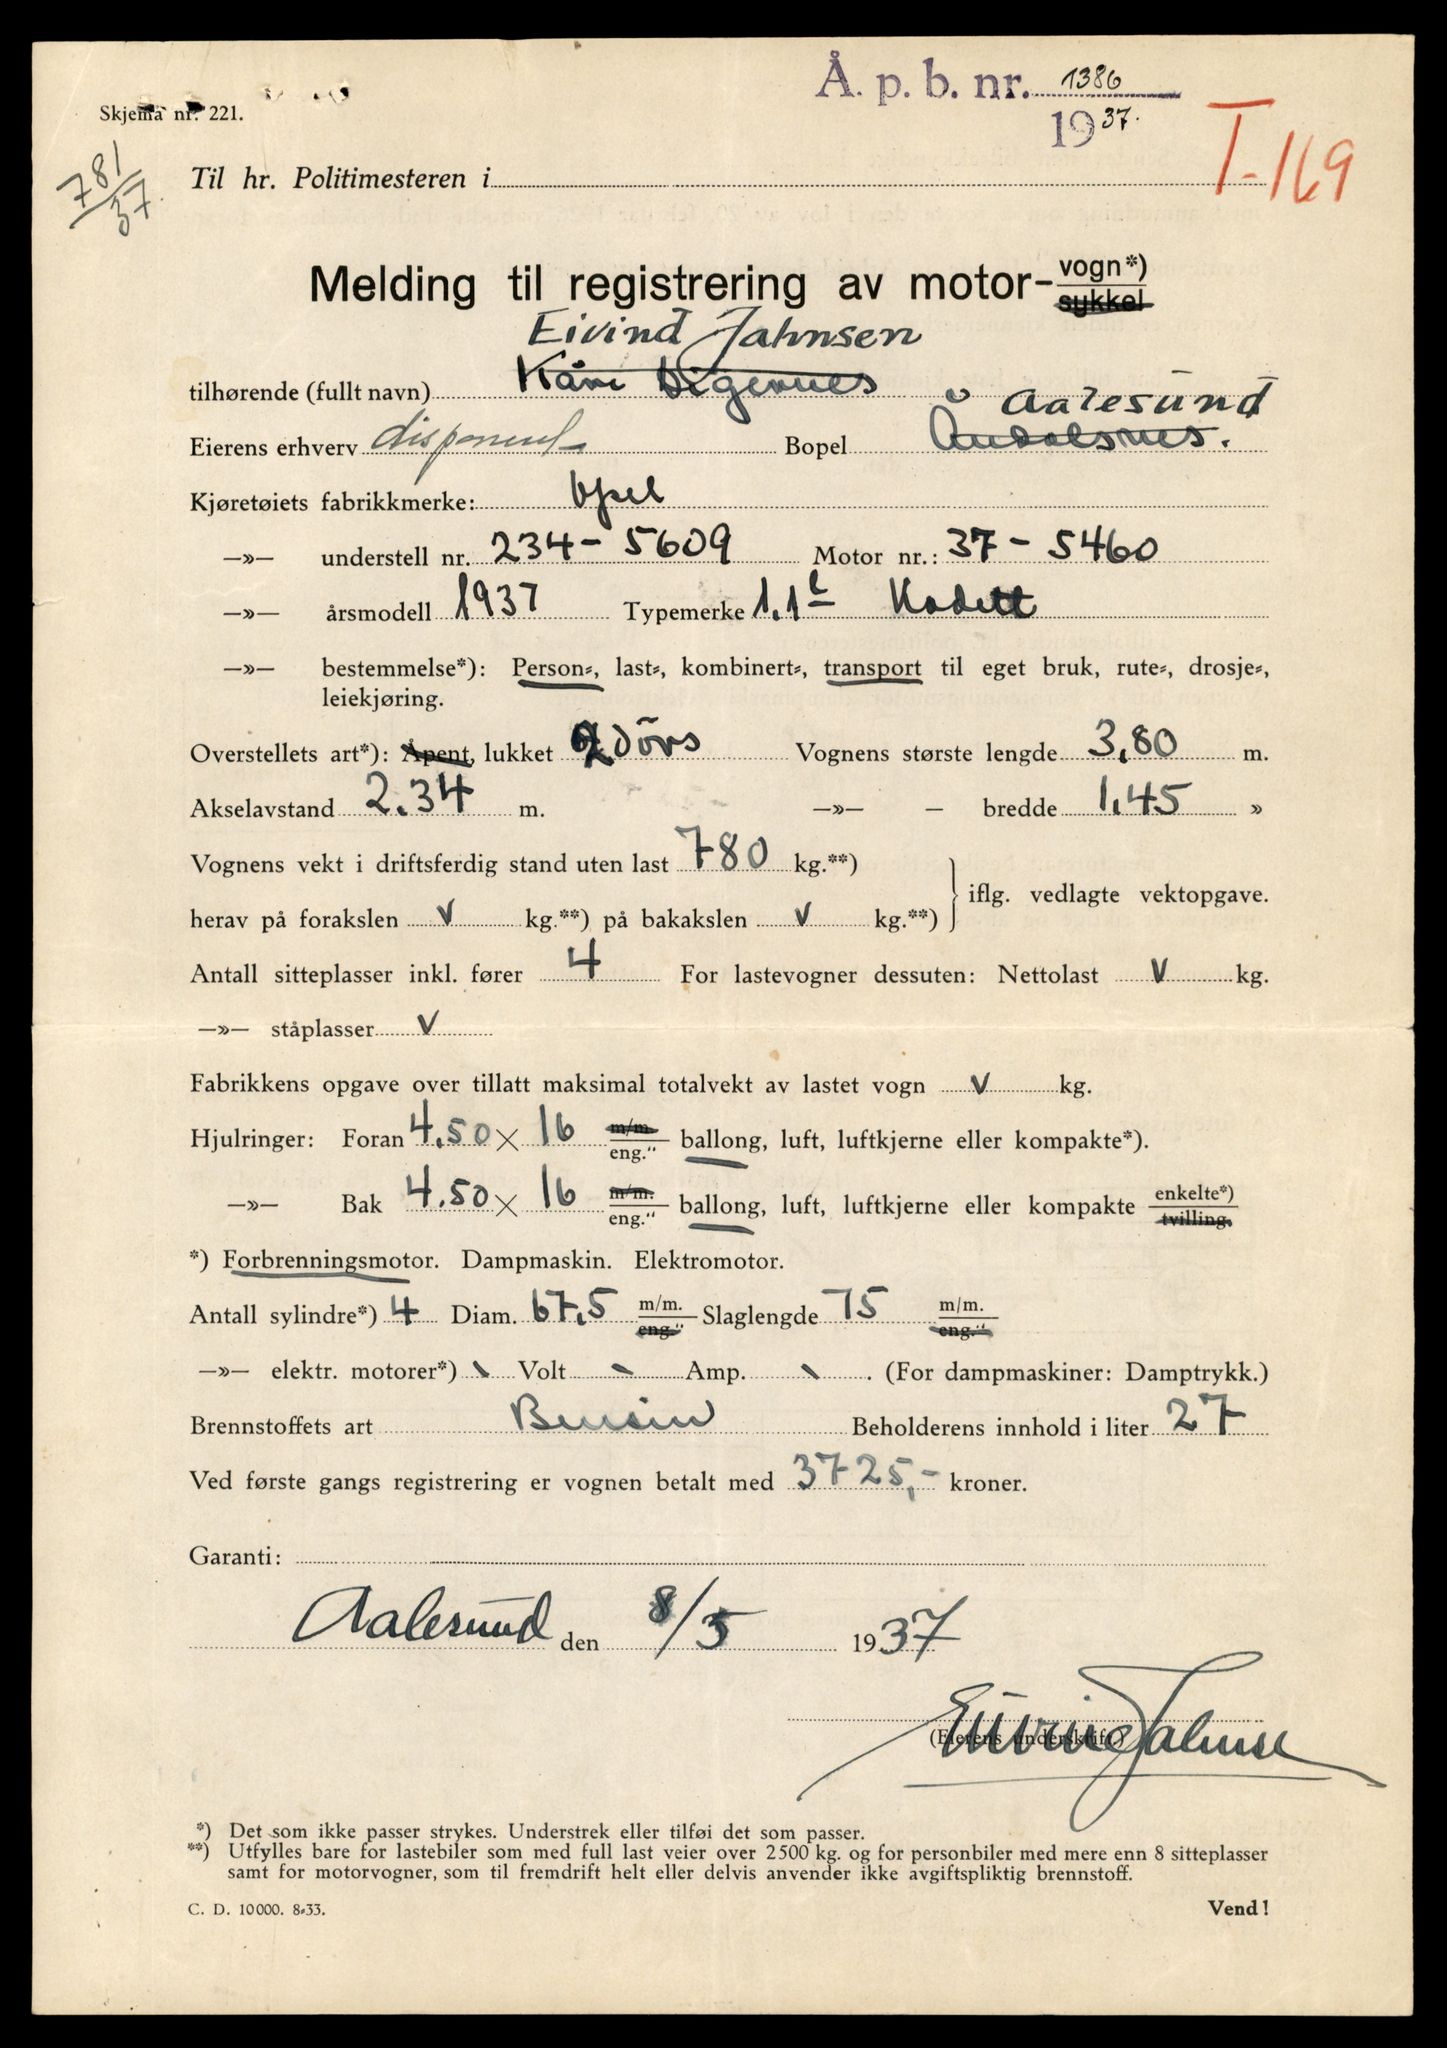 Å. p. b. nr. 1386
1937.
Skjema nr. 221.
T-169
781/37
Til hr. Politimesteren i
Melding til registrering av motor- vogn*) sykkel
Eivind Jahnsen
tilhørende (fullt navn) Kåre Digernes
Aalesund
Eierens erhverv disponent Bopel Åndalsnes.
Kjøretøiets fabrikkmerke: Opel
—»— understell nr. 234-5609 Motor nr.: 37-5460
—»— årsmodell 1937 Typemerke 1,1 l Kadett
—»— bestemmelse*): Person-, last-, kombinert-, transport til eget bruk, rute-, drosje-,
leiekjøring.
Overstellets art*): Åpent, lukket 2 dörs Vognens største lengde 3,80 m.
Akselavstand 2.34 m. —»— — bredde 1,45 »
Vognens vekt i driftsferdig stand uten last 780 kg.**)
iflg. vedlagte vektopgave.
herav på forakslen v kg.**) på bakakslen v kg.**)
Antall sitteplasser inkl. fører 4 For lastevogner dessuten: Nettolast v kg.
—»— ståplasser v
Fabrikkens opgave over tillatt maksimal totalvekt av lastet vogn v kg.
Hjulringer: Foran 4.50 × 16 m/m. eng." ballong, luft, luftkjerne eller kompakte*).
—»— Bak 4.50 × 16 m/m. eng." ballong, luft, luftkjerne eller kompakte enkelte*) tvilling.
*) Forbrenningsmotor. Dampmaskin. Elektromotor.
Antall sylindre*) 4 Diam. 67,5 m/m. eng." Slaglengde 75 m/m. eng."
—»— elektr. motorer*) \ Volt \ Amp. \ . (For dampmaskiner: Damptrykk.)
Brennstoffets art Bensin Beholderens innhold i liter 27
Ved første gangs registrering er vognen betalt med 3725,- kroner.
Garanti:
Aalesund den 8/5 1937
Eivind Jahnsen
(Eierens underskrift)
*) Det som ikke passer strykes. Understrek eller tilføi det som passer.
**) Utfylles bare for lastebiler som med full last veier over 2500 kg. og for personbiler med mere enn 8 sitteplasser
samt for motorvogner, som til fremdrift helt eller delvis anvender ikke avgiftspliktig brennstoff.
C. D. 10000. 8-33.
Vend!